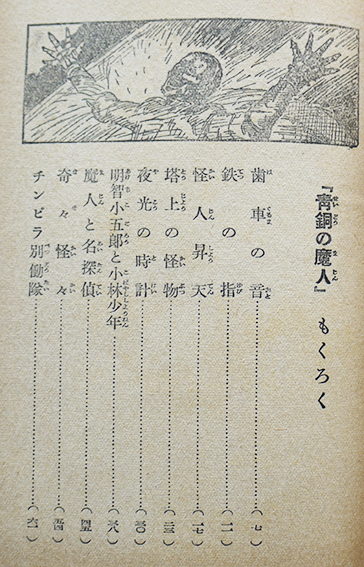 『青銅の魔人』 もくろく
歯車の音……………(七)
鉄の指……………(一一)
怪人昇天……………(一七)
塔上の怪物……………(二三)
夜光の時計……………(三〇)
明智小五郎と小林少年……………(三八)
魔人と名探偵……………(四五)
奇々怪々……………(五四)
チンピラ別働隊……………(六一)